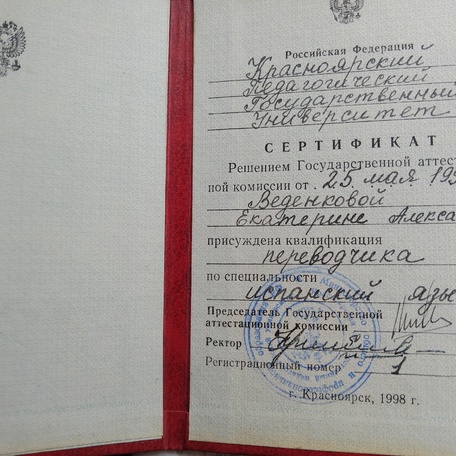 Российская Федерация
Красноярский
Педагогический
Государственный
Университет
СЕРТИФИКАТ
Решением Государственной аттест
ной комиссии от . 25 мая 199
Веденковой
Екатерине Алекса
присуждена квалификация
переводчика
по специальности
испанский язы
Председатель Государственной
аттестационной комиссии
Ректор
Регистрационный номер 1
г. Красноярск, 1998 г.